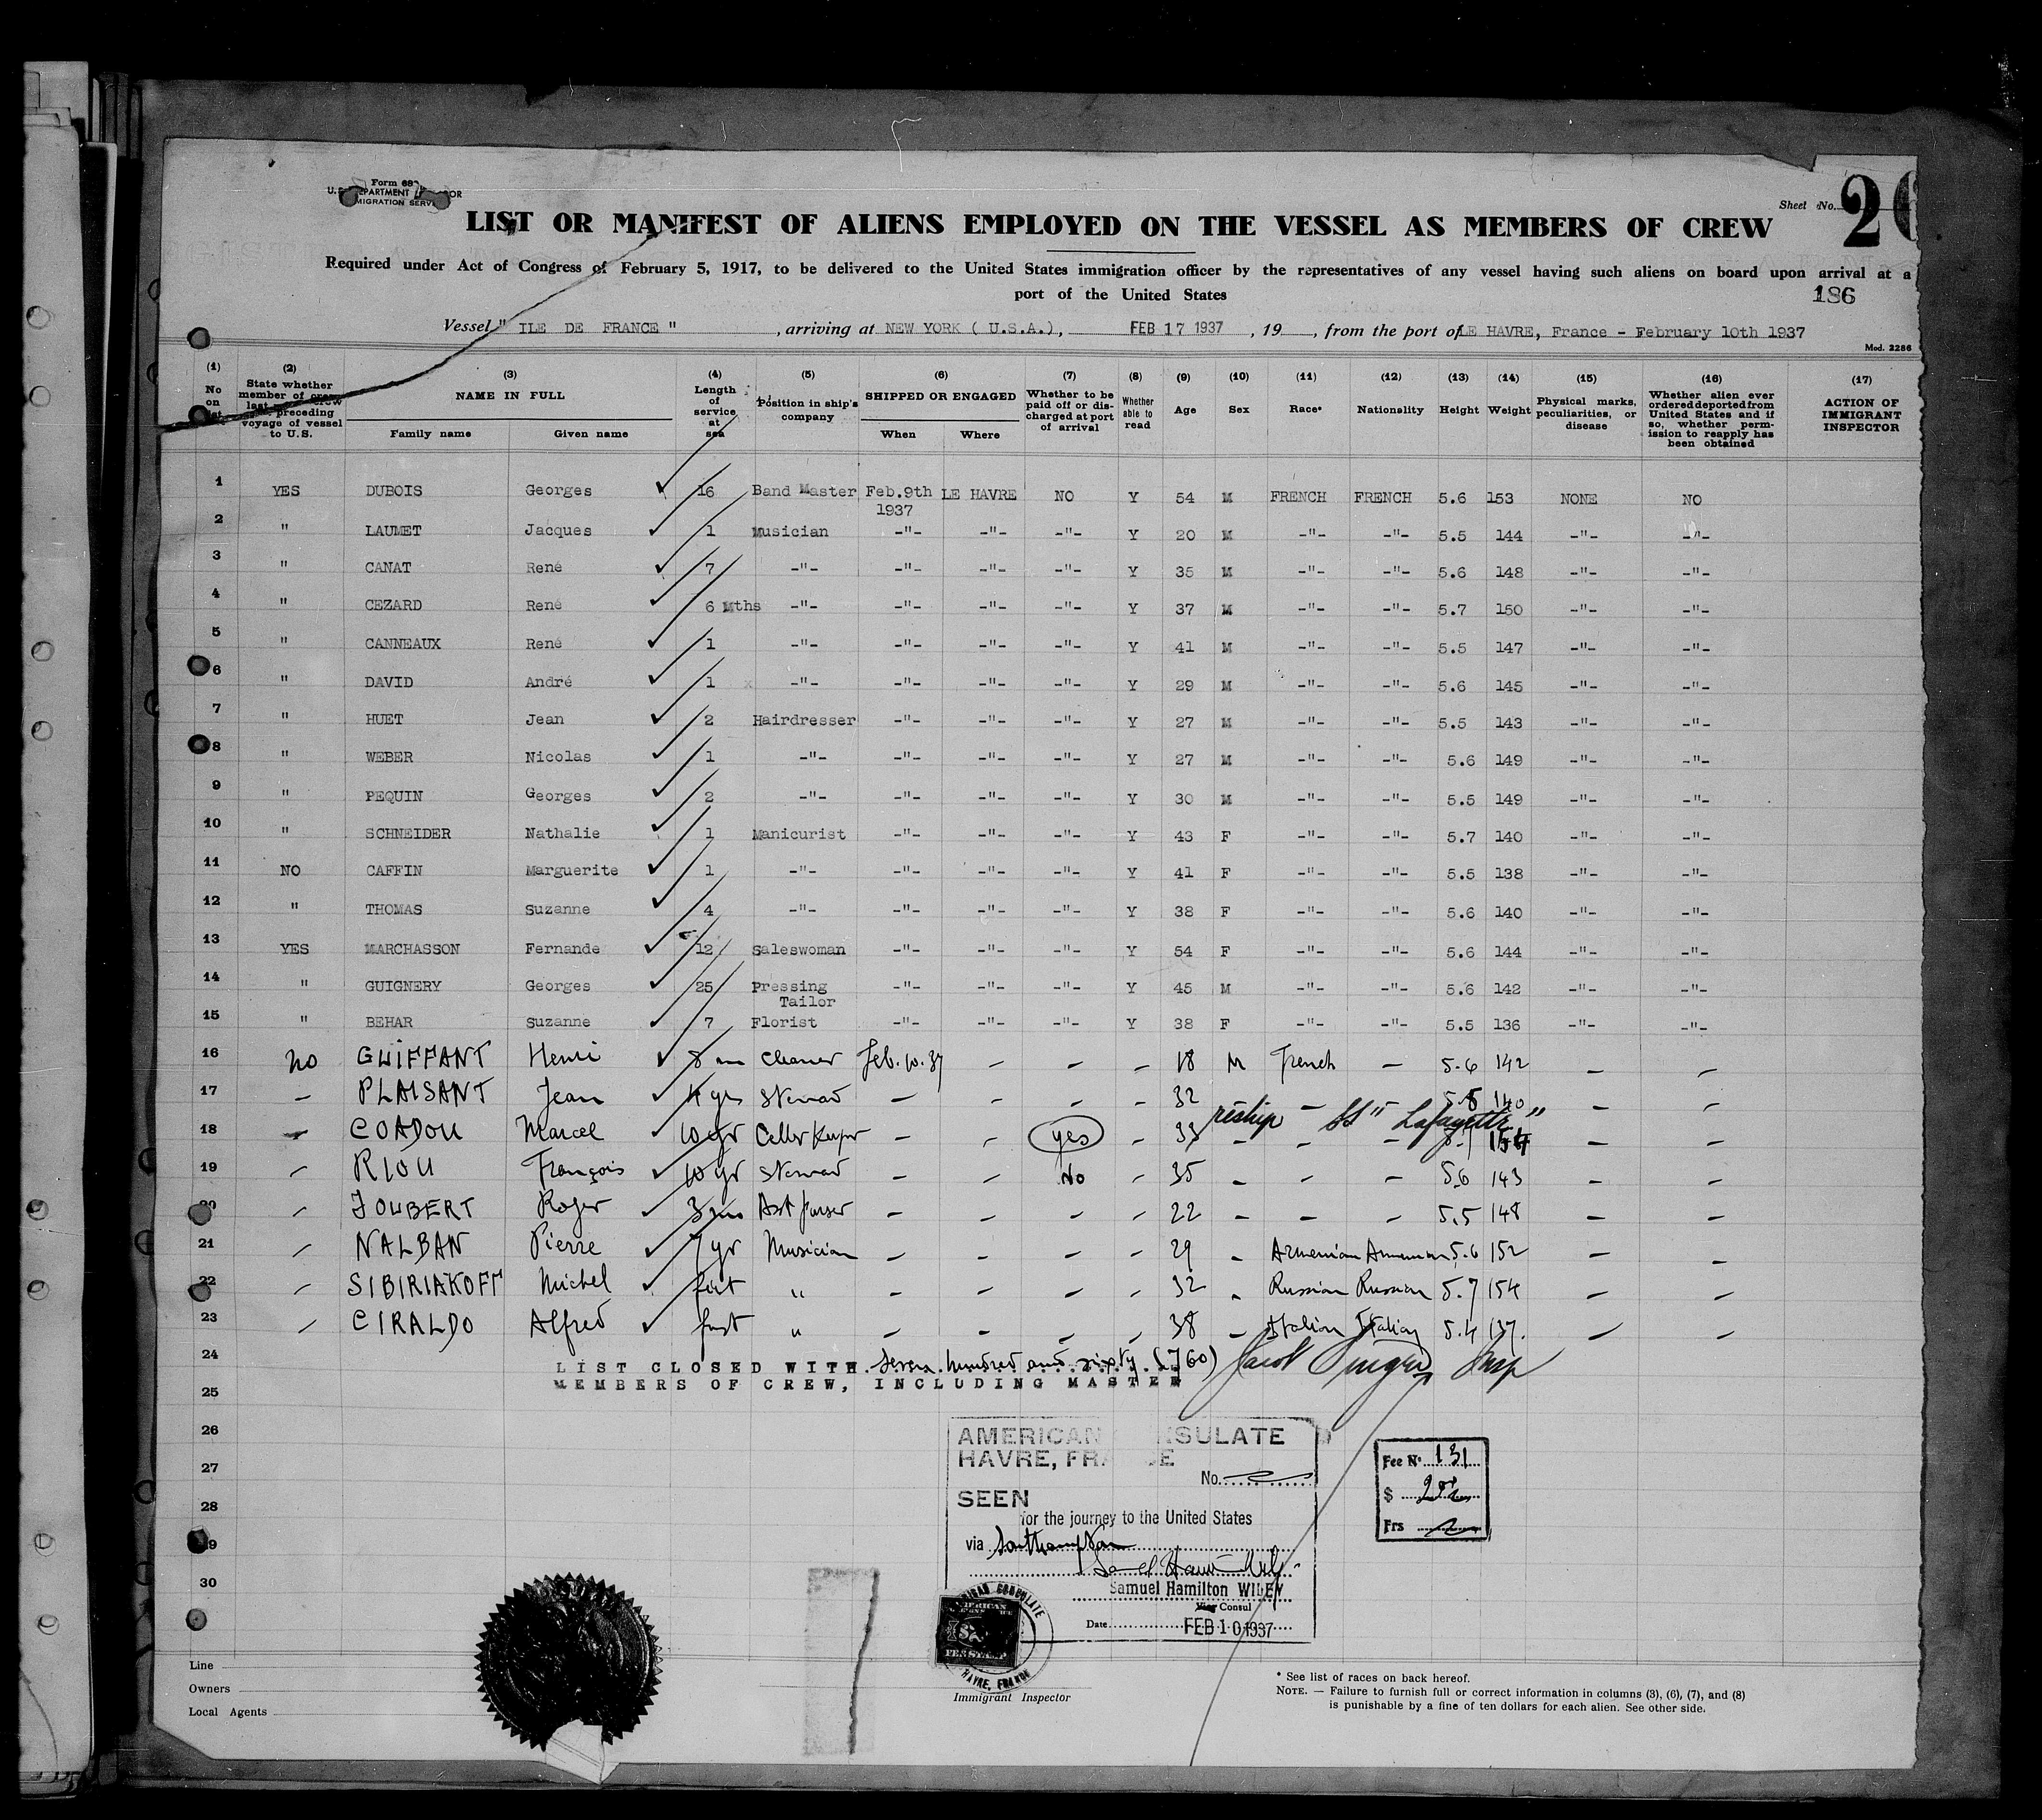 Form 689
U.S. DEPARTMENT OF LABOR
IMMIGRATION SERVICE
Sheet No. 26
LIST OR MANIFEST OF ALIENS EMPLOYED ON THE VESSEL AS MEMBERS OF CREW
Required under Act of Congress of February 5, 1917, to be delivered to the United States immigration officer by the representatives of any vessel having such aliens on board upon arrival at a
port of the United States
186
Vessel " ILE DE FRANCE " , arriving at NEW YORK ( U.S.A.), FEB 17 1937 , 19 , from the port of LE HAVRE, France - February 10th 1937
Mod. 2286
(1) No on list
(2) State whether member of crew last preceding voyage of vessel to U.S.
(3) NAME IN FULL Family name Given name
(4) Length of service at sea
(5) Position in ship's company
(6) SHIPPED OR ENGAGED When Where
(7) Whether to be paid off or discharged at port of arrival
(8) Whether able to read
(9) Age
(10) Sex
(11) Race*
(12) Nationality
(13) Height
(14) Weight
(15) Physical marks, peculiarities, or disease
(16) Whether alien ever ordered deported from United States and if so, whether permission to reapply has been obtained
(17) ACTION OF IMMIGRANT INSPECTOR
1 YES DUBOIS Georges 16 Band Master Feb.9th 1937 LE HAVRE NO Y 54 M FRENCH FRENCH 5.6 153 NONE NO
2 " LAUMET Jacques 1 Musician -"- -"- -"- Y 20 M -"- -"- 5.5 144 -"- -"-
3 " CANAT René 7 -"- -"- -"- -"- Y 35 M -"- -"- 5.6 148 -"- -"-
4 " CEZARD René 6 Mths -"- -"- -"- -"- Y 37 M -"- -"- 5.7 150 -"- -"-
5 " CANNEAUX René 1 -"- -"- -"- -"- Y 41 M -"- -"- 5.5 147 -"- -"-
6 " DAVID André 1 x -"- -"- -"- -"- Y 29 M -"- -"- 5.6 145 -"- -"-
7 " HUET Jean 2 Hairdresser -"- -"- -"- Y 27 M -"- -"- 5.5 143 -"- -"-
8 " WEBER Nicolas 1 -"- -"- -"- -"- Y 27 M -"- -"- 5.6 149 -"- -"-
9 " PEQUIN Georges 2 -"- -"- -"- -"- Y 30 M -"- -"- 5.5 149 -"- -"-
10 " SCHNEIDER Nathalie 1 Manicurist -"- -"- -"- Y 43 F -"- -"- 5.7 140 -"- -"-
11 NO CAFFIN Marguerite 1 -"- -"- -"- -"- Y 41 F -"- -"- 5.5 138 -"- -"-
12 " THOMAS Suzanne 4 -"- -"- -"- -"- Y 38 F -"- -"- 5.6 140 -"- -"-
13 YES MARCHASSON Fernande 12 Saleswoman -"- -"- -"- Y 54 F -"- -"- 5.6 144 -"- -"-
14 " GUIGNERY Georges 25 Pressing Tailor -"- -"- -"- Y 45 M -"- -"- 5.6 142 -"- -"-
15 " BEHAR Suzanne 7 Florist -"- -"- -"- Y 38 F -"- -"- 5.5 136 -"- -"-
16 no GUIFFANT Henri 8 m Cleaner Feb. 10. 37 - - - 18 M French - 5.6 142 - -
17 - PLAISANT Jean 4 yrs Steward - - - - 32 - 5.8 140 - -
reship SS "Lafayette"
18 - COADOU Marcel 10 yr Celler Keeper - - yes - 33 - - - 154 - -
19 - RIOU François 10 yr Steward - - No - 35 - - - 5.6 143 - -
20 - JOUBERT Roger Asst purser - - - - 22 - - - 5.5 148 - -
21 - NALBAN Pierre 7 yr Musician - - - - 29 - Armenian Armenian 5.6 152 - -
22 - SIBIRIAKOFF Michel first " - - - - 32 - Russian Russian 5.7 154 - -
23 - CIRALDO Alfred first " - - - - 38 - Italian Italian 5.4 137. - -
24 LIST CLOSED WITH seven hundred and sixty (760) Jacob Insp
25 MEMBERS OF CREW, INCLUDING MASTER
26
27
28
29
30
AMERICAN CONSULATE
HAVRE, FRANCE
No.
SEEN
for the journey to the United States
via Southampton
Samuel Hamilton WILEY
Vice Consul
Date FEB 10 1937
Fee No. 131
$
Frs
AMERICAN CONSULATE
HAVRE, FRANCE
Line
Owners
Local Agents
Immigrant Inspector
* See list of races on back hereof.
NOTE. — Failure to furnish full or correct information in columns (3), (6), (7), and (8)
is punishable by a fine of ten dollars for each alien. See other side.